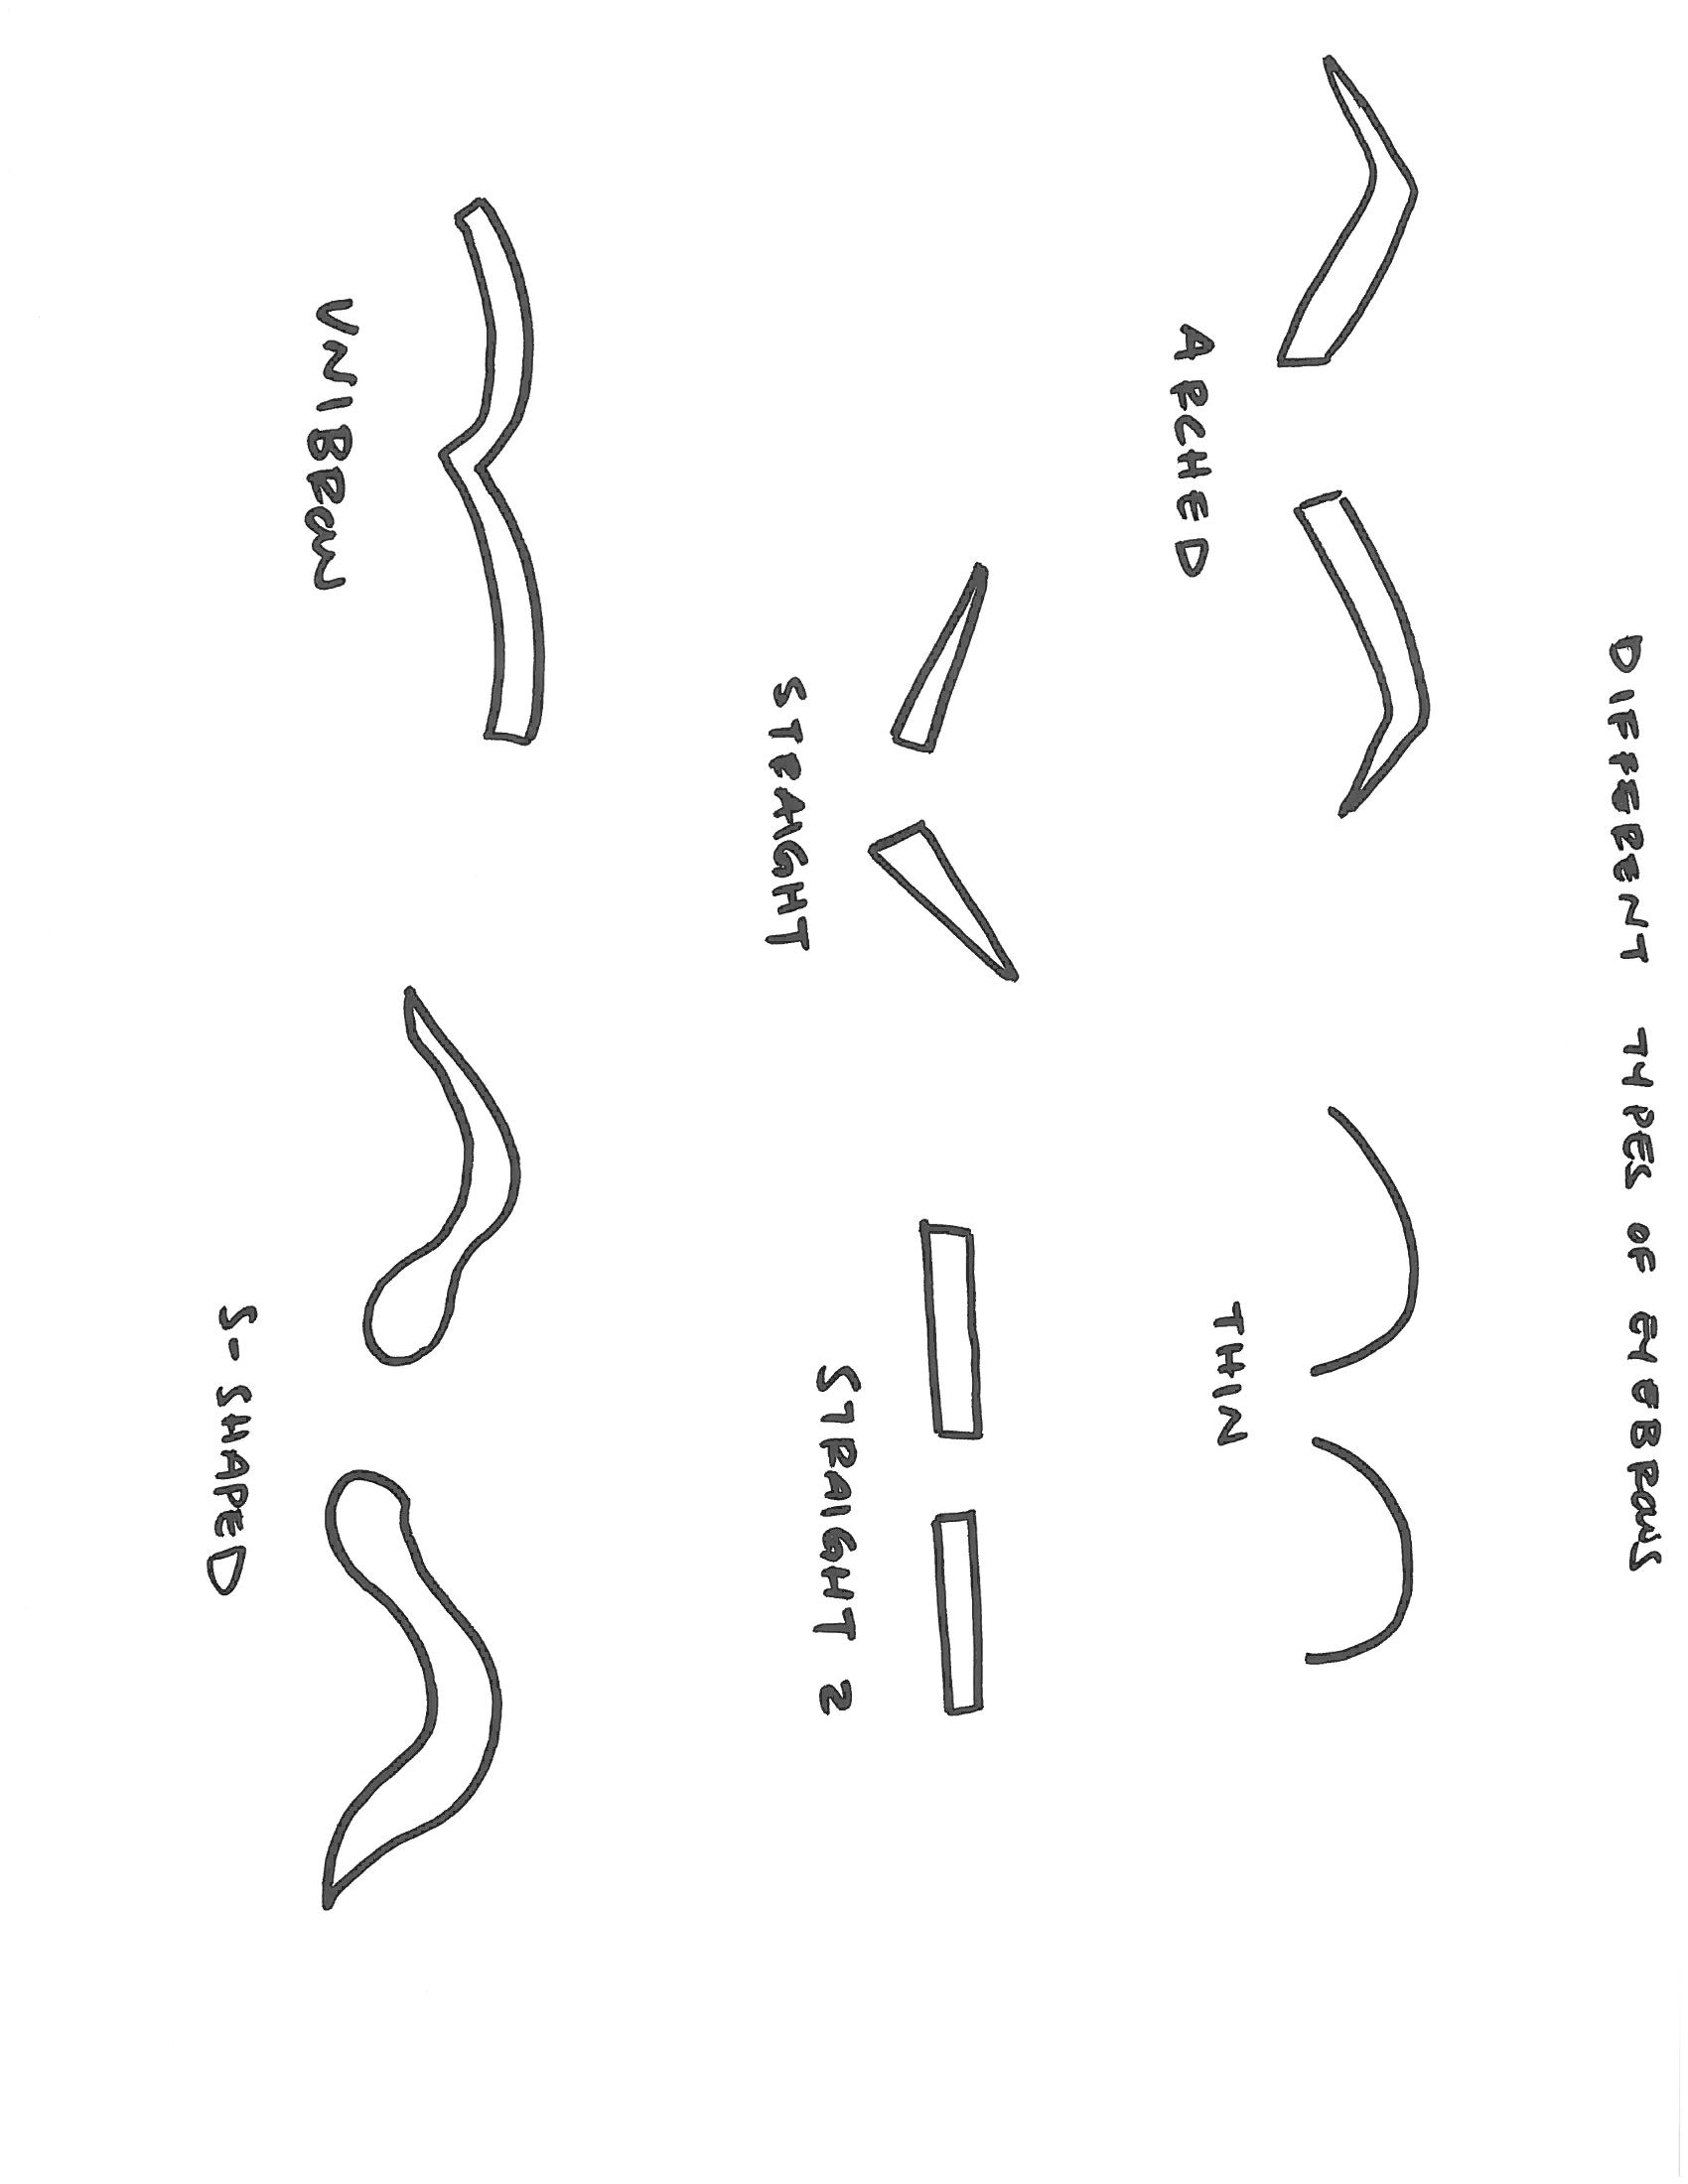 DIFFERENT TYPES OF EYEBROWS
ARCHED
THIN
STRAIGHT
STRAIGHT 2
UNIBROW
S-SHAPED